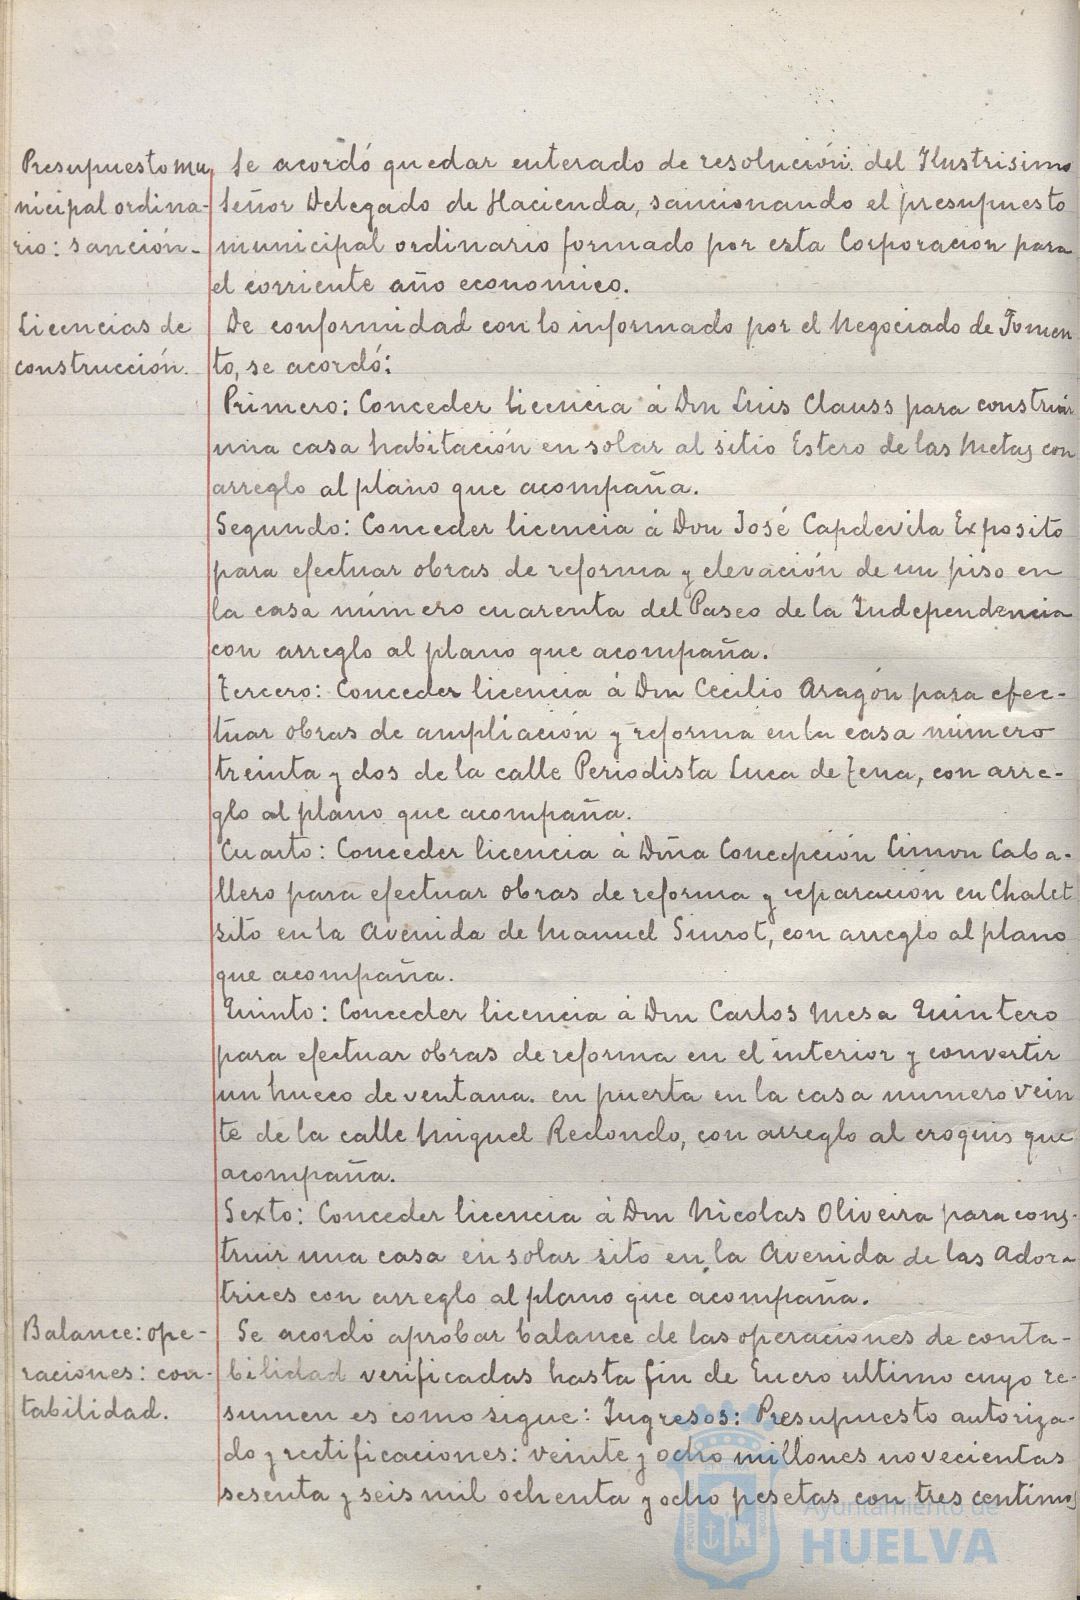 Presupuesto mu
nicipal ordina-
rio: sanción-
Se acordó quedar enterado de resolución del Ilustrisimo
Señor Delegado de Hacienda, sancionando el presupuesto
municipal ordinario formado por esta Corporacion para
el corriente año economico.
Licencias de
construcción.
De conformidad con lo informado por el Negociado de Fomen
to, se acordó:
Primero: Conceder licencia á Don Luis Clauss para construir
una casa habitación en solar al sitio Estero de las Metas con
arreglo al plano que acompaña.
Segundo: Conceder licencia á Don José Capdevila Exposito
para efectuar obras de reforma y elevación de un piso en
la casa número cuarenta del Paseo de la Independencia
con arreglo al plano que acompaña.
Tercero: Conceder licencia á Don Cecilio Aragón para efec-
tuar obras de ampliación y reforma en la casa número
treinta y dos de la calle Periodista Luca de Tena, con arre-
glo al plano que acompaña.
Cuarto: Conceder licencia á Doña Concepción Limon Caba-
llero para efectuar obras de reforma y reparación en Chalet
sito en la Avenida de Manuel Siurot, con arreglo al plano
que acompaña.
Quinto: Conceder licencia á Don Carlos Mesa Quintero
para efectuar obras de reforma en el interior y convertir
un hueco de ventana. en puerta en la casa numero vein
te de la calle Miguel Redondo, con arreglo al croquis que
acompaña.
Sexto: Conceder licencia á Don Nicolas Oliveira para cons-
truir una casa en solar sito en la Avenida de las Adora
trices con arreglo al plano que acompaña.
Balance: ope-
raciones: con-
tabilidad.
Se acordó aprobar balance de las operaciones de conta-
bilidad verificadas hasta fin de Enero ultimo cuyo re-
sumen es como sigue: Ingresos: Presupuesto autoriza-
do y rectificaciones: veinte y ocho millones novecientas
sesenta y seis mil ochenta y ocho pesetas con tres centimos
Ayuntamiento de
HUELVA